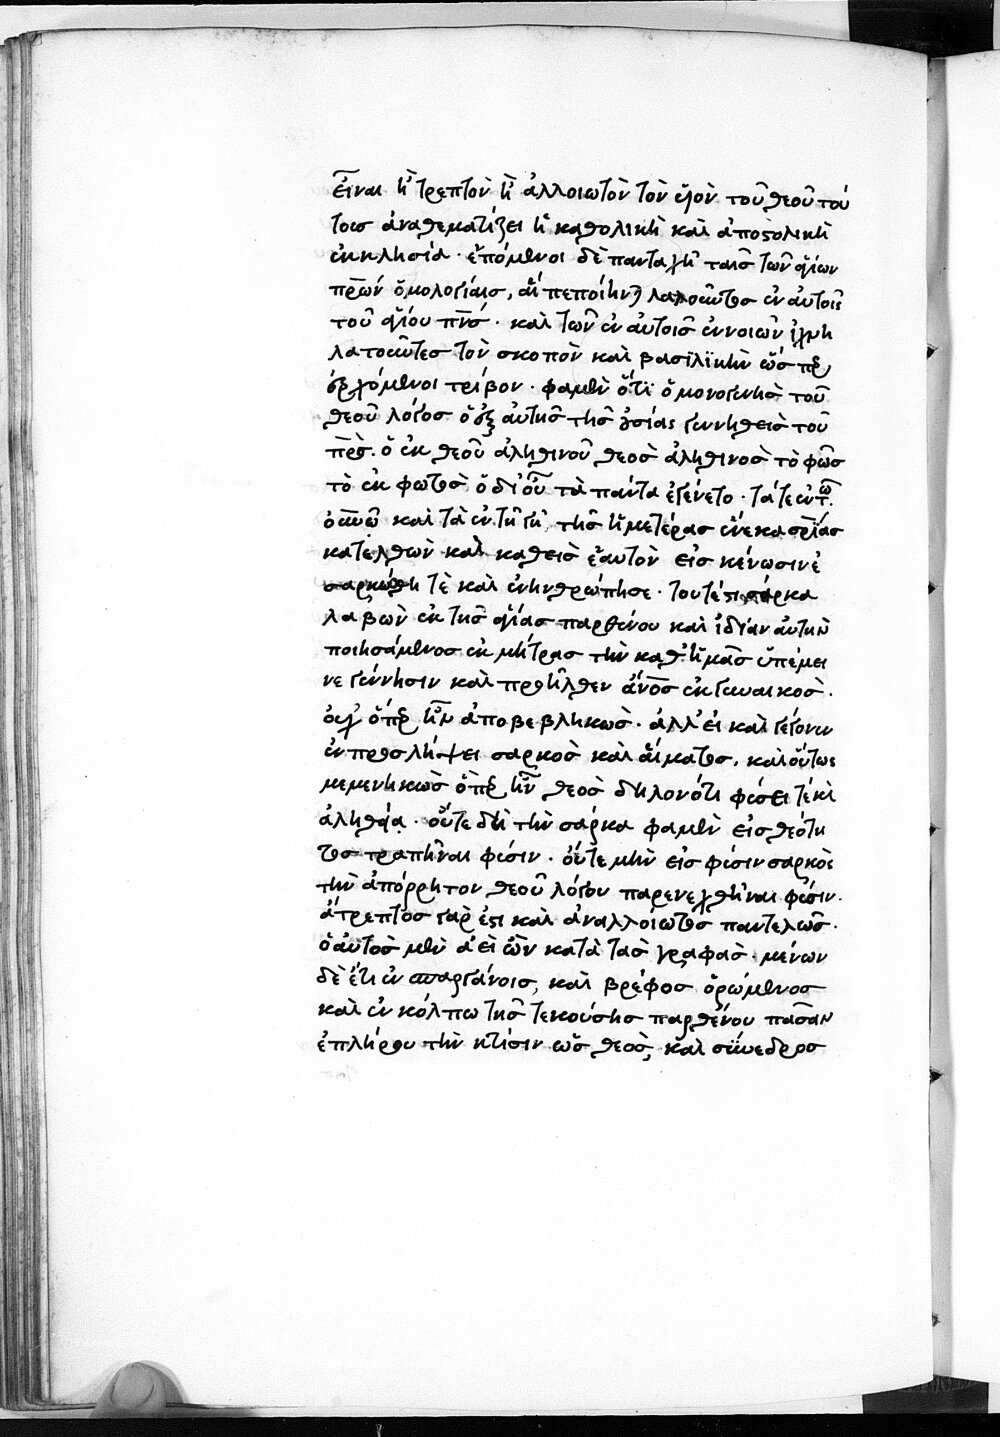 εἶναι ἢ τρεπτὸν ἢ ἀλλοιωτὸν τὸν υἱὸν τοῦ θεοῦ τού
τοις ἀναθεματίζει ἡ καθολικὴ καὶ ἀποστολικὴ
ἐκκλησία · ἑπόμενοι δὲ πανταχῆ ταῖς τῶν ἁγίων
πρων ὁμολογίαις, αἳ πεποίηνται λαλοῦντος ἐν αὐτοῖς
τοῦ ἁγίου πνς · καὶ τῶν ἐν αὐτοῖς ἐννοιῶν ἰχνη
λατοῦντες τὸν σκοπὸν καὶ βασιλικὴν ὥσπερ
ἐρχόμενοι τρίβον · φαμὲν ὅτι ὁ μονογενὴς τοῦ
θεοῦ λόγος ὁ ἐξ αὐτῆς τῆς οὐσίας γεννηθεὶς τοῦ
πρς. ὁ ἐκ θεοῦ ἀληθινοῦ θεὸς ἀληθινὸς τὸ φῶς
τὸ ἐκ φωτὸς ὁ δι' οὗ τὰ πάντα ἐγένετο · τά τε ἐν τῶ
οὐνω καὶ τὰ ἐν τῆ γῆ, τῆς ἡμετέρας ἕνεκα σρίας
κατελθὼν καὶ καθεὶς ἑαυτὸν εἰς κένωσιν ἐ
σαρκώθη τὲ καὶ ἐνηνθρώπησε · τουτέστι σάρκα
λαβὼν ἐκ τῆς ἁγίας παρθένου καὶ ἰδίαν αὐτὴν
ποιησάμενος ἐκ μήτρας τὴν καθ' ἡμᾶς ὑπέμει
νε γέννησιν καὶ προῆλθεν ἄνος ἐκ γυναικὸς ·
οὐχ ὅπερ ἦν ἀποβεβληκὼς · ἀλλ' εἰ καὶ γέγονεν
ἐν προσλήψει σαρκὸς καὶ αἵματος, καὶ οὕτως
μεμενηκὼς ὅπερ ἦν θεὸς δηλονότι φύσει τὲ καὶ
ἀληθεία · οὔτε δὲ τὴν σάρκα φαμὲν εἰς θεότη
τος τραπῆναι φύσιν · οὔτε μὴν εἰς φύσιν σαρκὸς
τὴν ἀπόρρητον θεοῦ λόγου παρενεχθῆναι φύσιν.
ἄτρεπτος γάρ ἐστι καὶ ἀναλλοίωτος παντελῶς ·
ὁ αὐτὸς μὲν ἀεὶ ὢν κατὰ τὰς γραφάς · μένων
δὲ ἔτι ἐν σπαργάνοις, καὶ βρέφος ὁρώμενος
καὶ ἐν κόλπω τῆς τεκούσης παρθένου πᾶσαν
ἐπλήρου τὴν κτίσιν ὡς θεὸς, καὶ σύνεδρος